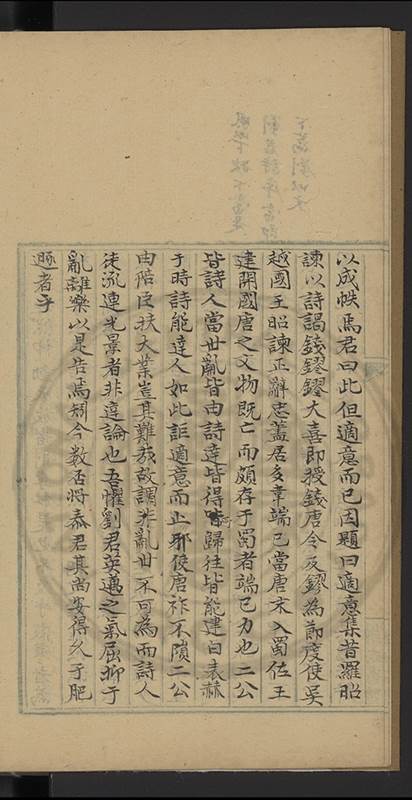 以成帙焉君曰此但適意而已因題曰適意集昔羅昭
諫以詩謁錢鏐鏐大喜即授錢唐令及鏐為節度使吳
越國王昭諫正辭忠藎居多韋端己當唐末入蜀佐王
建開國唐之文物既亡而頗存于蜀者端己力也二公
皆詩人當世亂皆由詩達皆得所歸往皆能建白表赫
于時詩能達人如此詎適意而止邪使唐祚不隕二公
由陪臣扶大業豈其難哉故謂非亂世不可為而詩人
徒流連光景者非達論也吾懼劉君英邁之氣屈抑于
亂離樂以是告焉矧今數否將泰君其尚安得久于肥
遯者乎